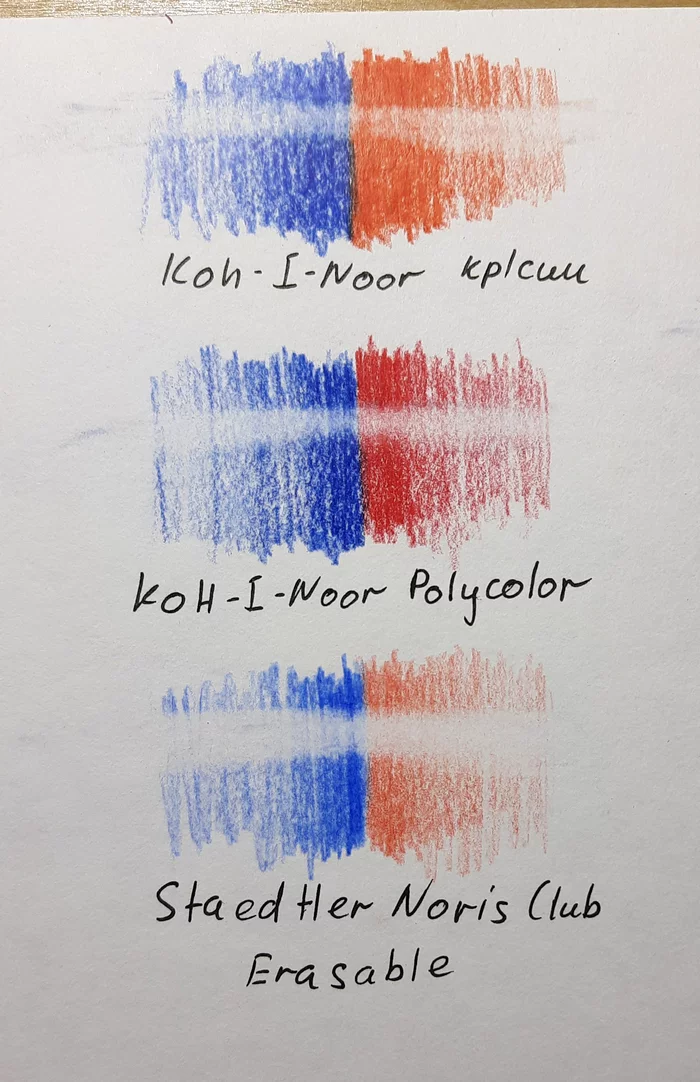 Koh-I-Noor кр/син
KOH-I-Noor Polycolor
Staedtler Noris Club
Erasable